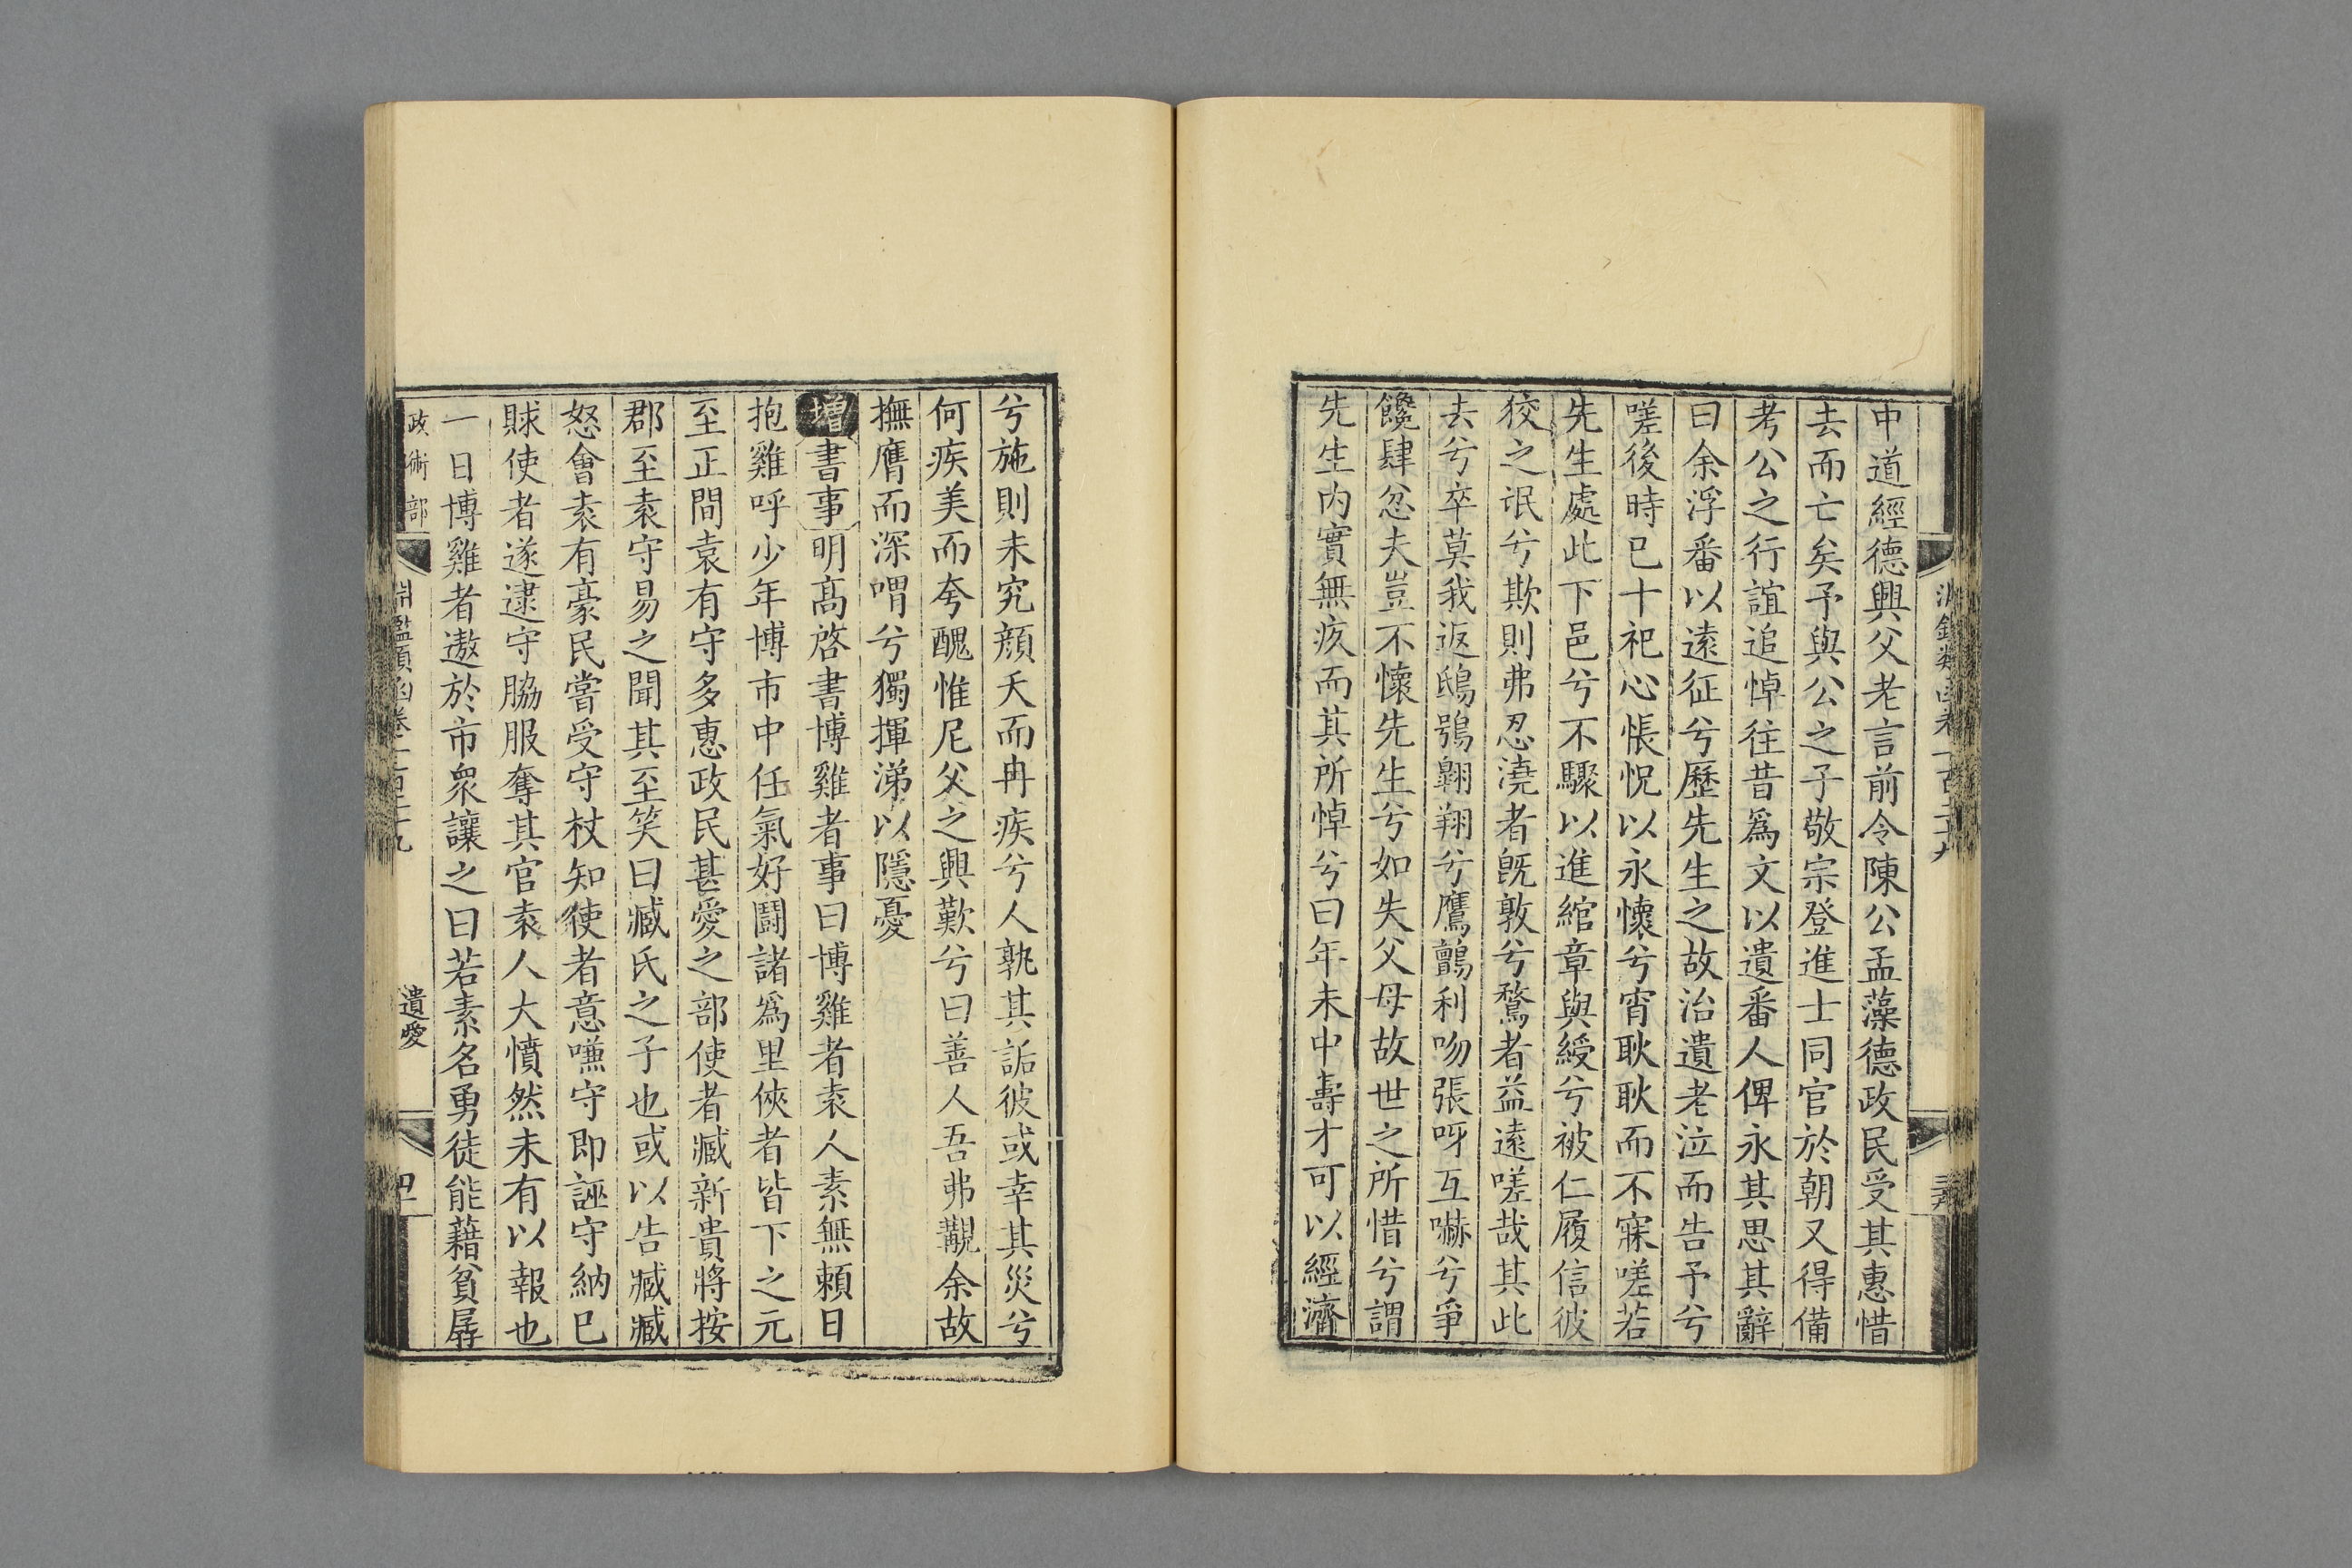 中道經德興父老言前令陳公孟藻德政民受其惠惜
去而亡矣予與公之子敬宗登進士同官於朝又得備
考公之行誼追悼往昔爲文以遺番人俾永其思其辭
曰余浮番以遠征兮歷先生之故治遺老泣而告予兮
嗟後時已十祀心悵怳以永懷兮宵耿耿而不寐嗟若
先生處此下邑兮不驟以進綰章與綬兮被仁履信彼
狡之氓兮欺則弗忍澆者旣敦兮驁者益遠嗟哉其此
去兮卒莫我返鴟鴞翺翔兮鷹鸇利吻張呀互嚇兮爭
饞肆忿夫豈不懷先生兮如失父母故世之所惜兮謂
先生内實無疚而其所悼兮曰年未中壽才可以經濟
兮施則未究顔夭而冉疾兮人孰其詬彼或幸其災兮
何疾美而夸醜惟尼父之興歎兮曰善人吾弗覯余故
撫膺而深喟兮獨揮涕以隱憂
增書事明高啓書博雞者事曰博雞者袁人素無賴日
抱雞呼少年博市中任氣好鬬諸爲里俠者皆下之元
至正間袁有守多惠政民甚愛之部使者臧新貴將按
郡至袁守易之聞其至笑曰臧氏之子也或以告臧臧
怒會袁有豪民嘗受守杖知使者意嗛守即誣守納已
賕使者遂逮守脇服奪其官袁人大憤然未有以報也
一日博雞者遨於市衆讓之曰若素名勇徒能藉貧孱
政術部
淵鑑類函卷一百二十九
遺愛